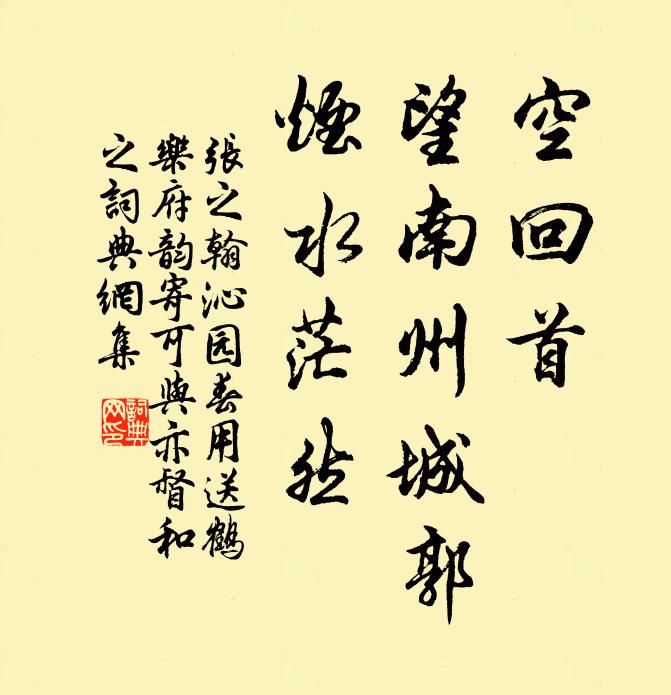 空回首
望南州城郭
烟水茫然
張之翰沁园春用送鶴
樂府韵寄可與亦督和
之詞典網集
詞典
网印